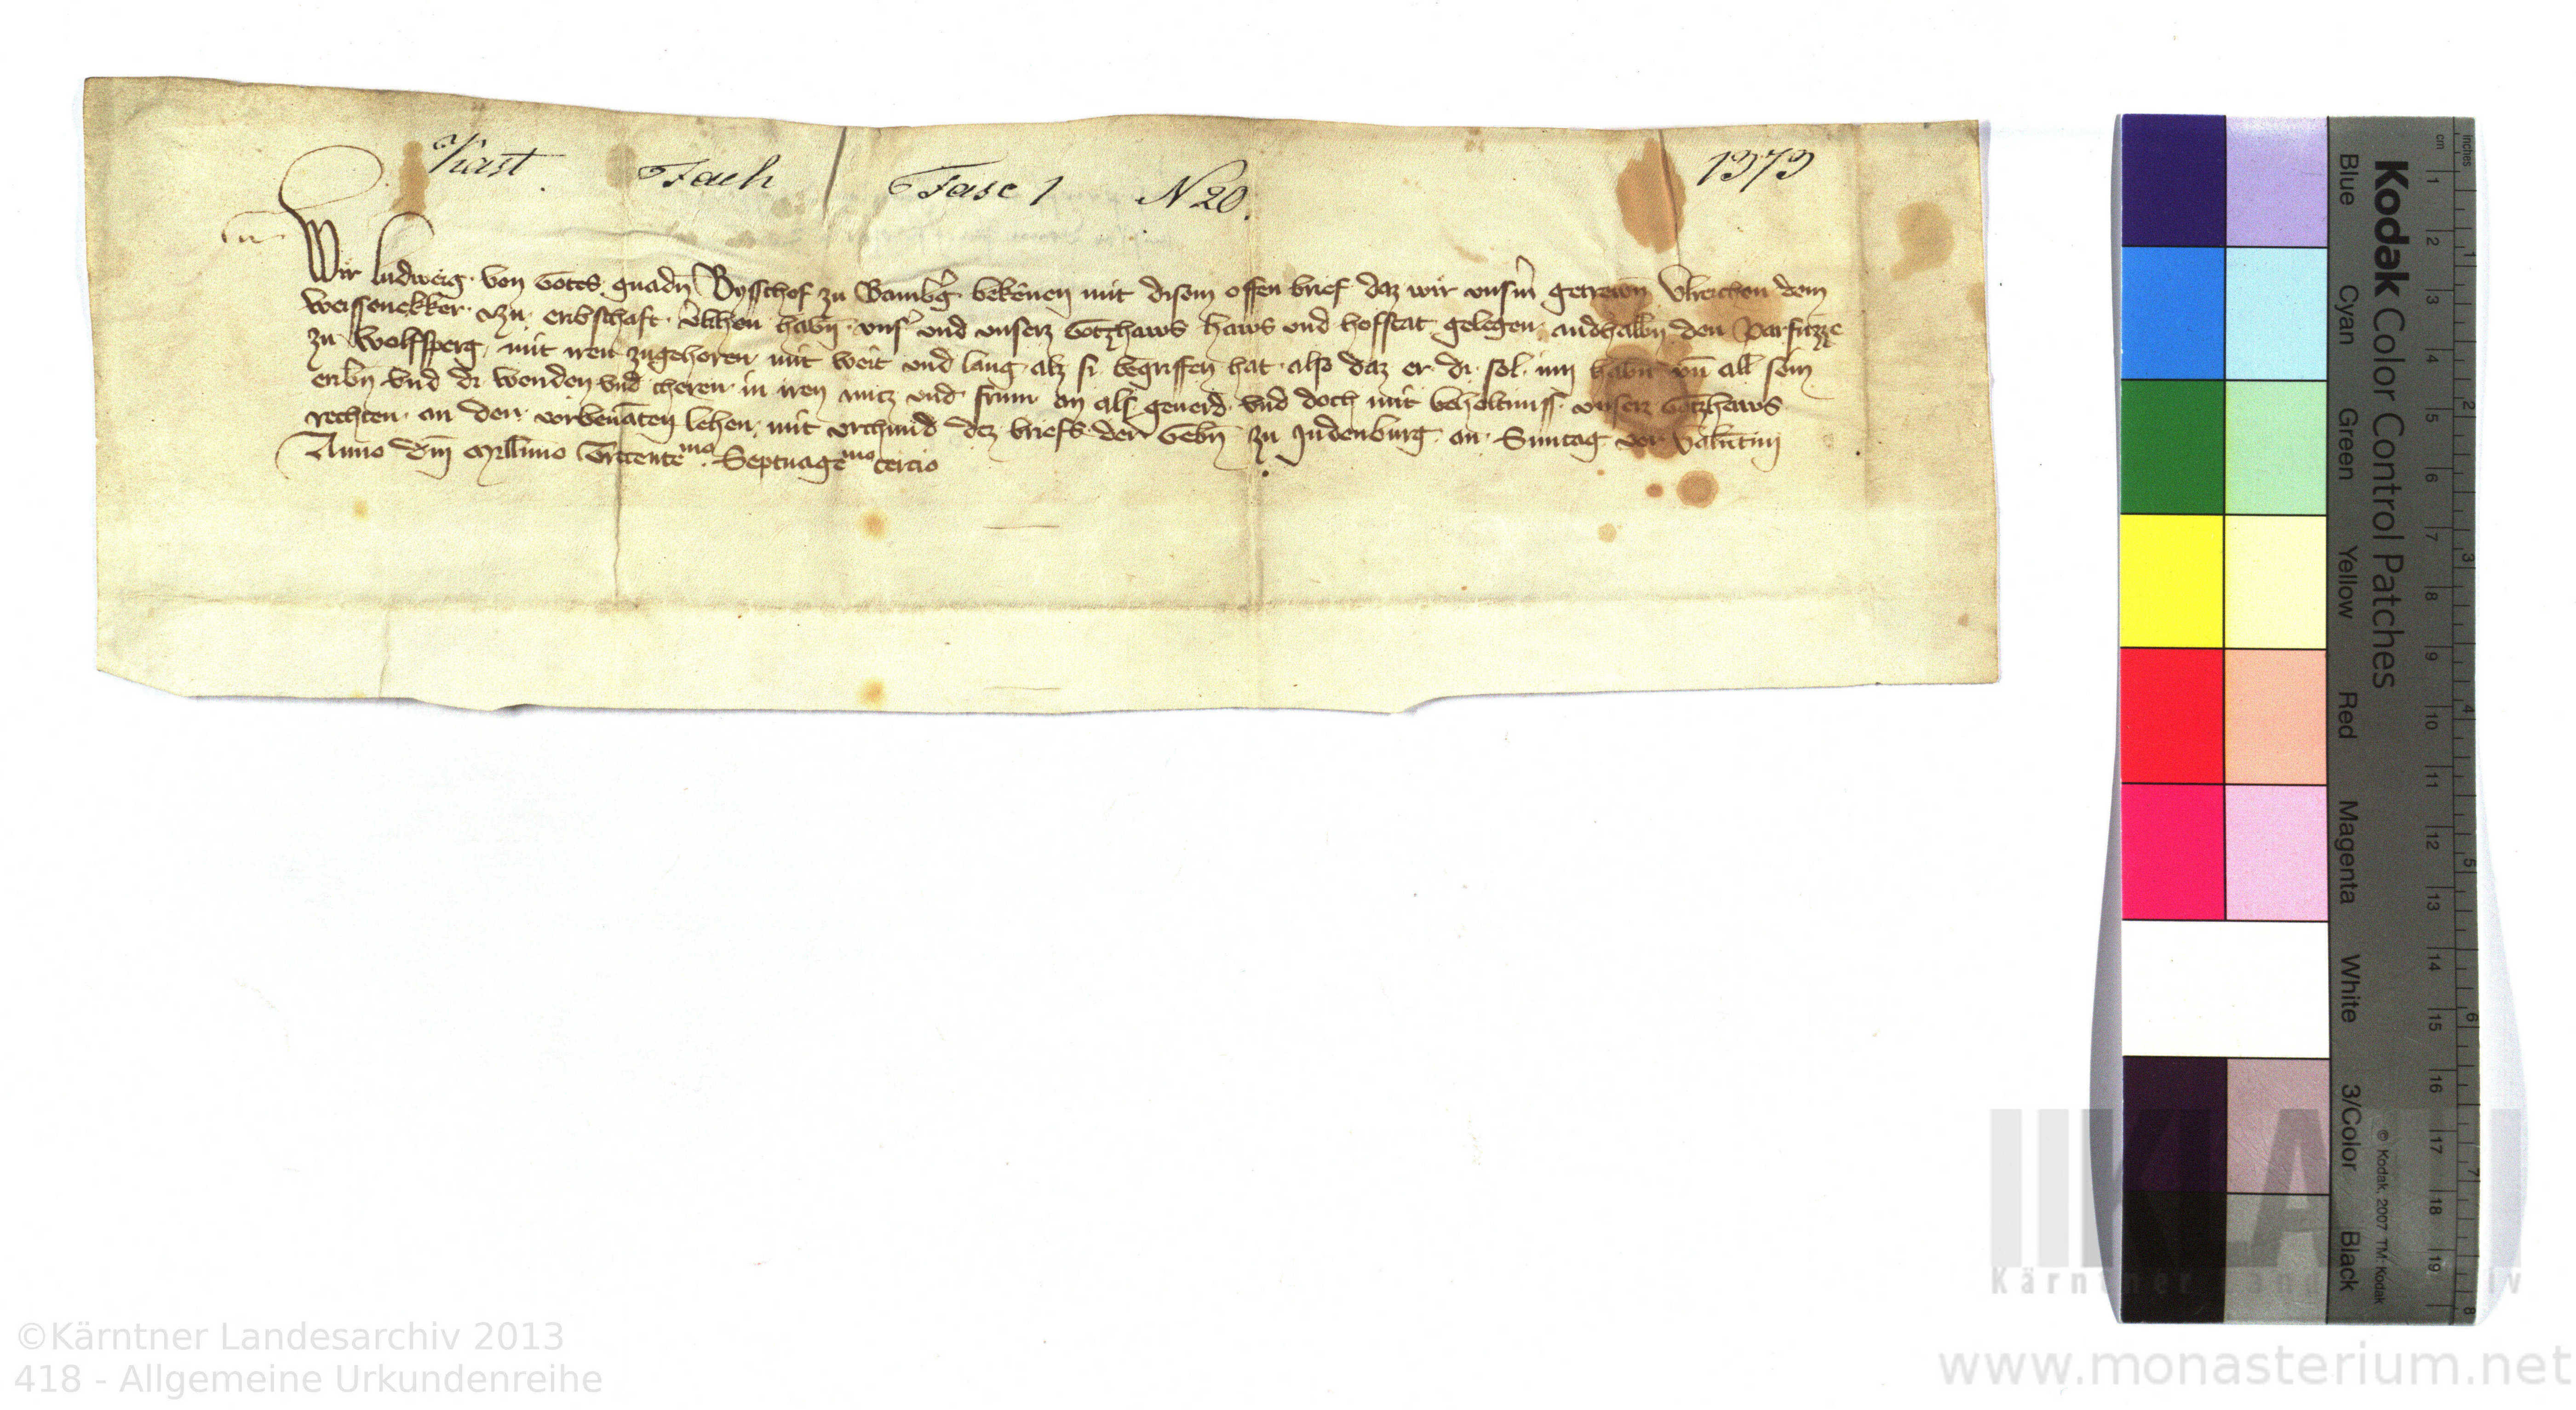 Kast. Fach Fasc 1 N 20. 1373
Wir Ludweig von Gotes gnadn̄ Bysschof zu Bamb̄g bekēnen mit disem offen brief daz wir vnsm̄ getrewn̄ Vlreichen dem
Weissenekker vn̄ erbschaft v̄lihen habn̄ vns̄ vnd vnserz Gotzhaws haws vnd hofstat gelegen andhalbn̄ den Parfuzze
zu Wolfsperg mit iren zugehoren mit weit vnd lang alz si begriffen hat also daz er di sol inn habn̄ vn̄ all sein
erbn̄ vnd di wenden vnd cheren in iren nucz vnd frum an als geuerd vnd doch mit beheltnuss vnserz Gotzhaws
rechten an den vorbenāten lehen mit vrchund dez briefs der Gebn̄ zu Judenburg an Suntag vor Valn̄tini
Anno dn̄i Mill̄imo Trecentēmo Septuagēmo tercio
Kodak Color Control Patches
Blue Cyan Green Yellow Red Magenta White 3/Color Black
© Kodak, 2007 TM: Kodak
inches 1 2 3 4 5 6 7 8
cm 1 2 3 4 5 6 7 8 9 10 11 12 13 14 15 16 17 18 19
©Kärntner Landesarchiv 2013
418 - Allgemeine Urkundenreihe
www.monasterium.net